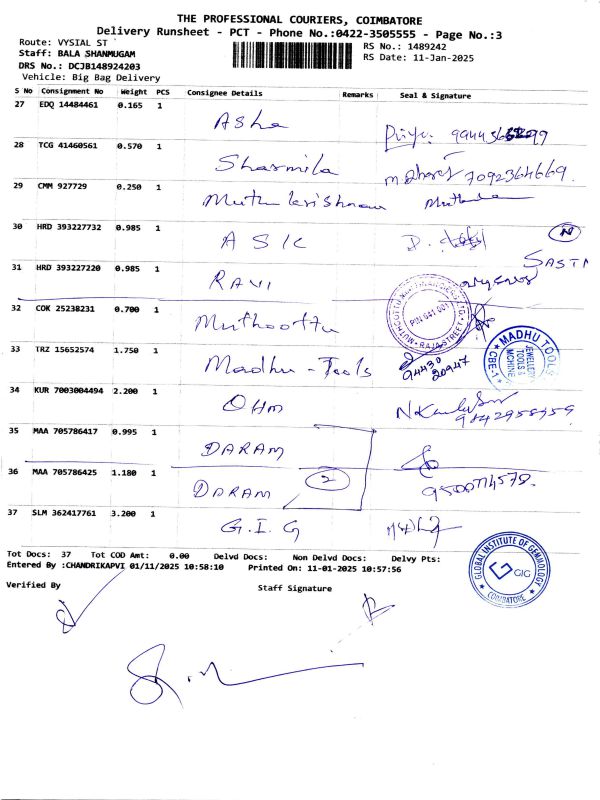 THE PROFESSIONAL COURIERS, COIMBATORE
Delivery Runsheet - PCT - Phone No.:0422-3505555 - Page No.:3
Route: VYSIAL ST
RS No.: 1489242
Staff: BALA SHANMUGAM
RS Date: 11-Jan-2025
DRS No.: DCJB148924203
Vehicle: Big Bag Delivery
S No Consignment No Weight PCS Consignee Details Remarks Seal & Signature
27 EDQ 14484461 0.165 1
Asha
28 TCG 41460561 0.570 1
Sharmila 7092364669.
29 CMM 927729 0.250 1
Muthukrishnan
30 HRD 393227732 0.985 1
ASK
SASTI
31 HRD 393227220 0.985 1
RAVI
32 COK 25238231 0.700 1
Muthoottu
PIN 641 001
RAJA STREET
33 TRZ 15652574 1.750 1
Madhu - Tools
94430
20947
MADHU TOOLS
JEWELLERY
TOOLS &
MCHINE
CBE-1
34 KUR 7003004494 2.200 1
OHM
35 MAA 705786417 0.995 1
DARAM
36 MAA 705786425 1.180 1
DARAM
2
37 SLM 362417761 3.200 1
G.I.G
Tot Docs: 37 Tot COD Amt: 0.00 Delvd Docs: Non Delvd Docs: Delvy Pts:
Entered By :CHANDRIKAPVI 01/11/2025 10:58:10 Printed On: 11-01-2025 10:57:56
GLOBAL INSTITUTE OF GEMMOLOGY
GIG
COIMBATORE
Verified By
Staff Signature